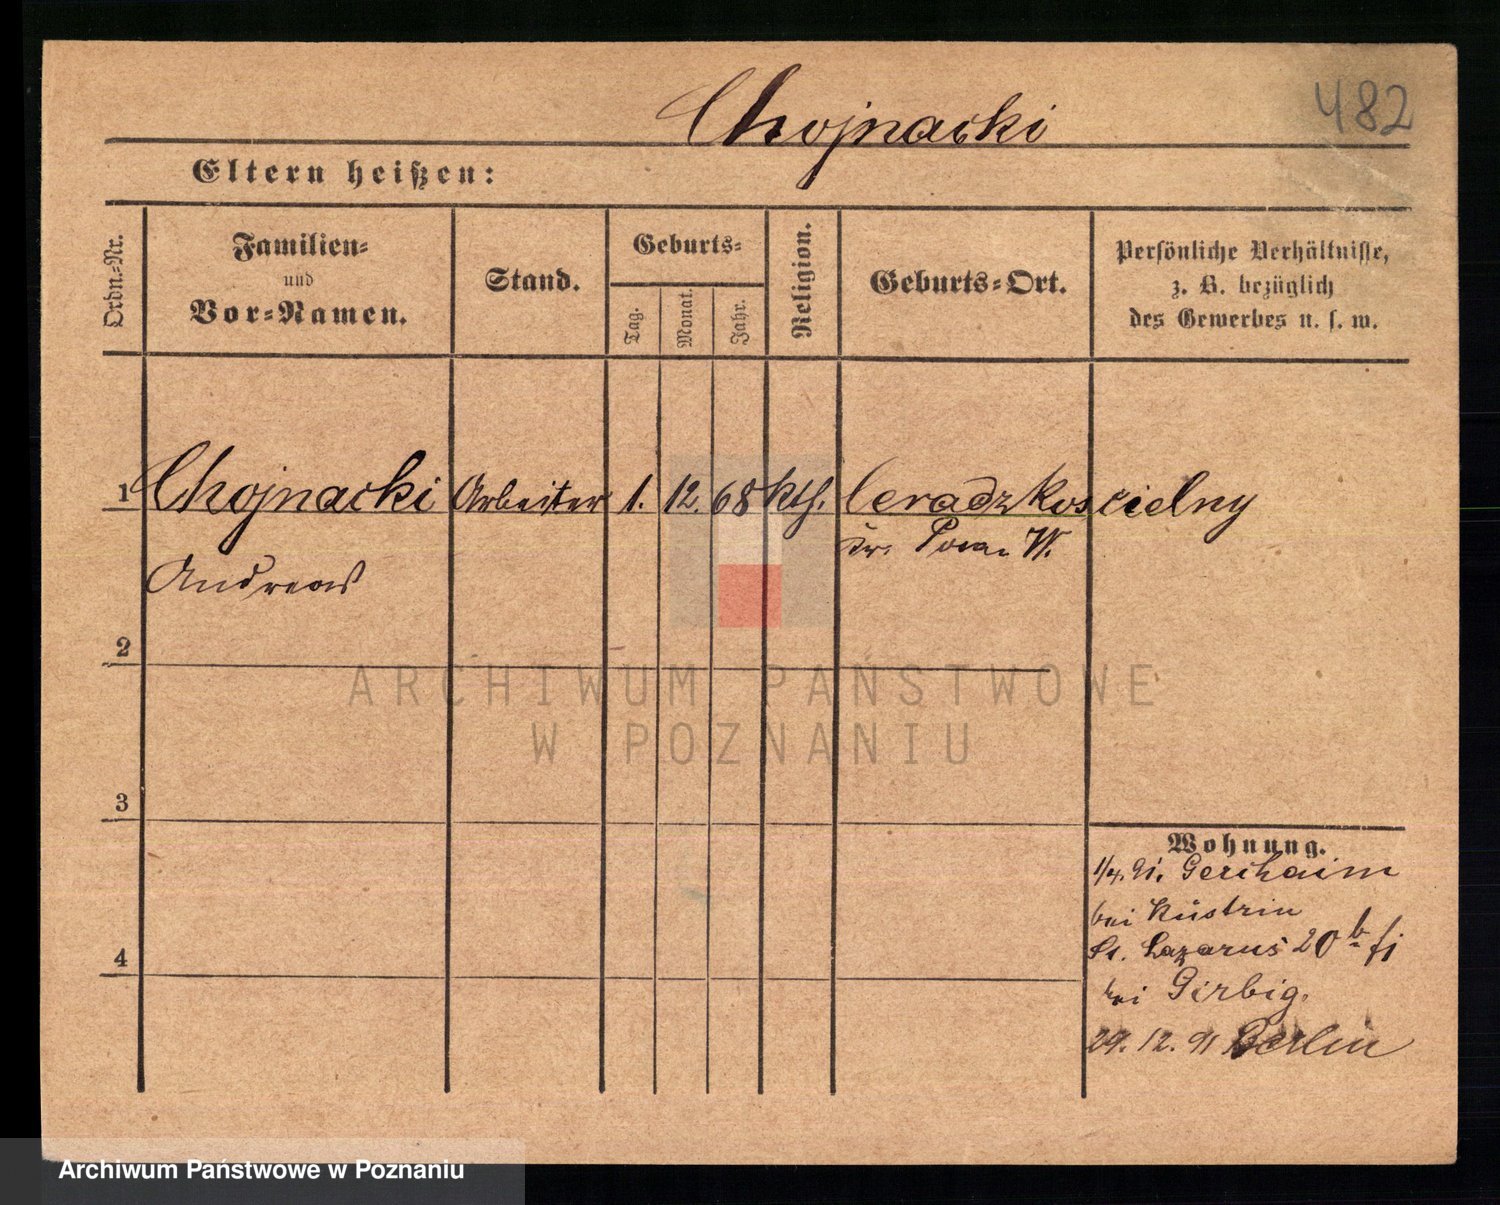 Chojnacki
482
Eltern heißen:
Ordn.-Nr.
Familien-
und
Vor-Namen.
Stand.
Geburts-
Tag.
Monat.
Jahr.
Religion.
Geburts-Ort.
Persönliche Verhältnisse,
z. B. bezüglich
des Gewerbes u. s. w.
1 Chojnacki Arbeiter 1. 12. 68 kth. Ceradzkoscielny
Kr. Posen W.
Andreas
2
ARCHIWUM PAŃSTWOWE
W POZNANIU
3
Wohnung.
1/4. 91. Gerihaim
bei Küstrin
St. Lazarus 20 b
4
bei Girbig.
29. 12. 91 Berlin
Archiwum Państwowe w Poznaniu